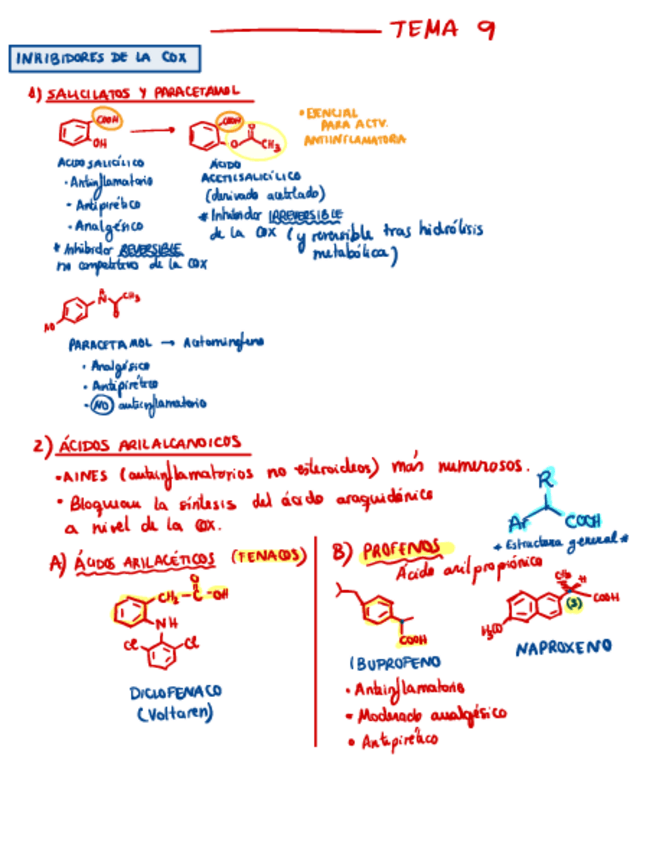 TEMA 9
INHIBIDORES DE LA COX
1) SALICILATOS Y PARACETAMOL
COOH
OH
COOH
O
O
CH3
* ESENCIAL
PARA ACTV.
ANTIINFLAMATORIA
ÁCIDO SALICÍLICO
· Antiinflamatorio
· Antipirético
· Analgésico
* Inhibidor REVERSIBLE
no competitivo de la COX
ÁCIDO
ACETILSALICÍLICO
(derivado acetilado)
* Inhibidor IRREVERSIBLE
de la COX (y reversible tras hidrólisis
metabólica)
H
N
CH3
O
HO
PARACETAMOL → Acetaminofeno
· Analgésico
· Antipirético
· NO antiinflamatorio
2) ÁCIDOS ARILALCANOICOS
· AINES (antiinflamatorios no esteroideos) más numerosos.
· Bloquean la síntesis del ácido araquidónico
a nivel de la COX.
R
Ar
COOH
* Estructura general *
A) ÁCIDOS ARILACÉTICOS (FENACOS)
O
CH2-C-OH
NH
Cl
Cl
DICLOFENACO
(Voltaren)
B) PROFENOS
Ácido arilpropiónico
COOH
IBUPROFENO
· Antiinflamatorio
· Moderado analgésico
· Antipirético
CH3
H
COOH
(S)
H3CO
NAPROXENO